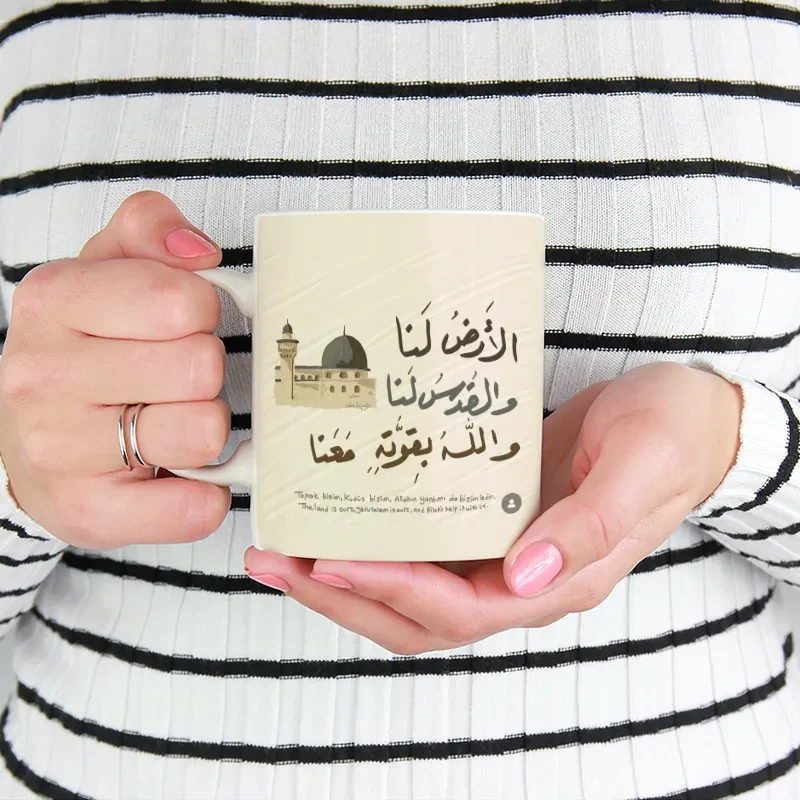 الأَرْضُ لَنا
والقُدسُ لَنا
واللّهُ بِقوَّتِهِ مَعَنا
Toprak bizim, Kudüs bizim, Allahın yardımı da bizimledir.
The land is ours, Jerusalem is ours, and Allah's help is with us.